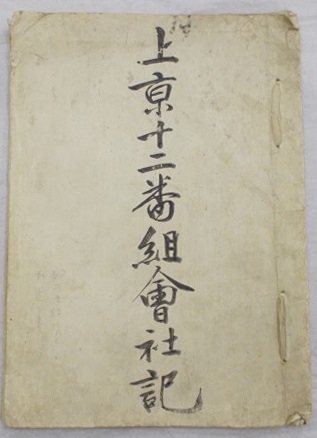 上京十二番組會社記